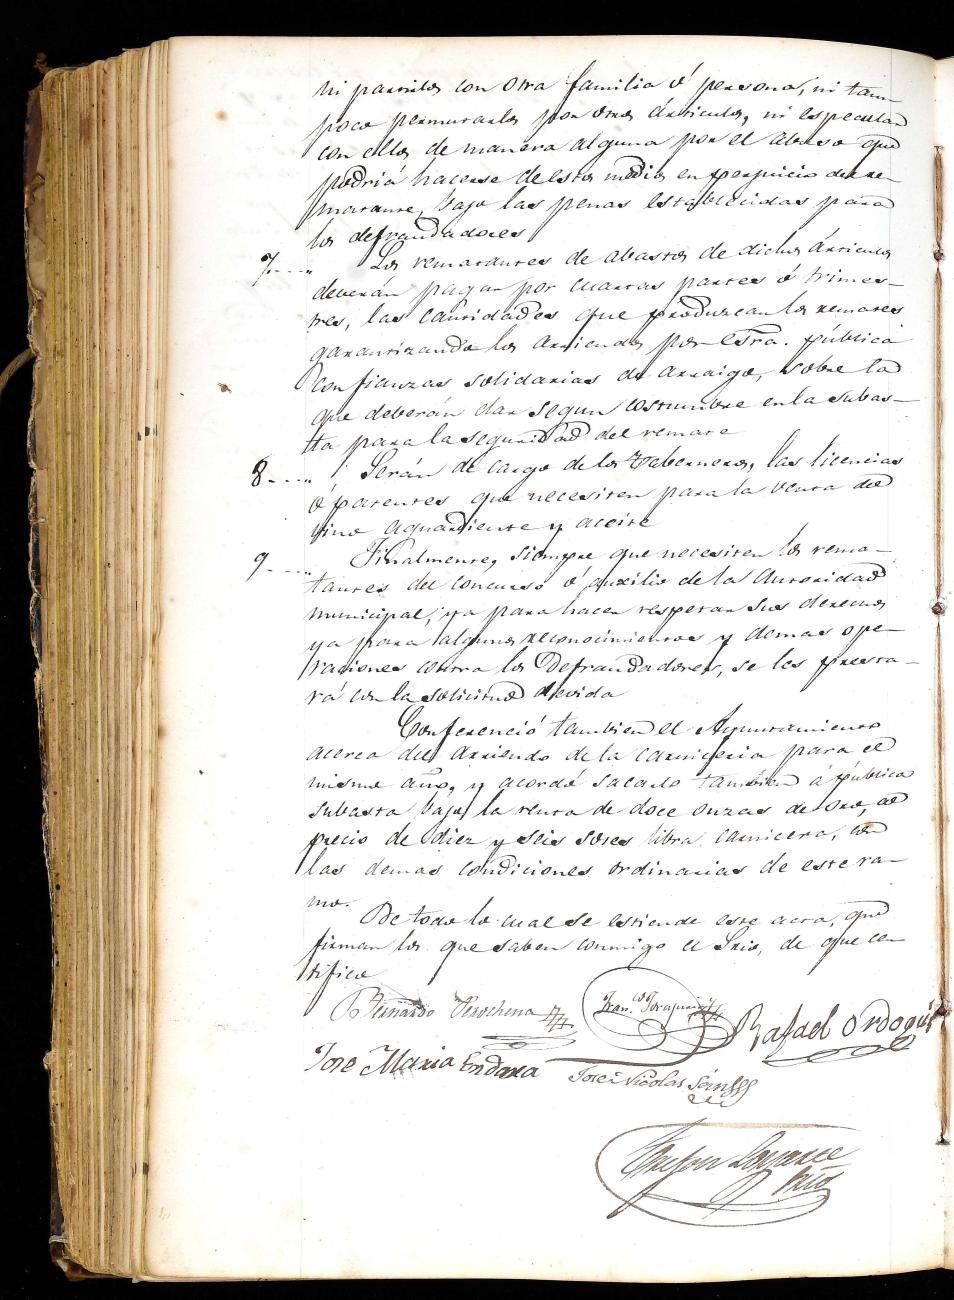 ni partirlos con otra familia ó persona, ni tam-
poco permutarlos por otros artículos, ni especular
con ellos de manera alguna por el abuso que
podria hacerse de estos medios en perjuicio del re-
matante, bajo las penas establecidas para
los defraudadores
7..... Los rematantes de abastos de dichos artículos
deberán pagar por cuartas partes ó trimes-
tres, las cantidades que produzcan los remates
garantizando los arriendos por Estra. pública
con fianzas solidarias de arraigo, sobre la
que deberán dar segun costumbre en la subas-
ta para la seguridad del remate
8..... Serán de cargo de los Taberneros, las licencias
ó patentes que necesiten para la venta del
vino aguardiente y aceite
9..... Finalmente, siempre que necesiten los rema-
tantes del concurso ó auxilio de la Autoridad
municipal, ya para hacer respetar sus derechos
ya para algunos reconocimientos y demas ope-
raciones contra los Defraudadores, se les presta-
rá con la solicitud devida
Conferenció tambien el Ayuntamiento
acerca del arriendo de la carniceria para el
mismo año, y acordó sacarlo tambien á pública
subasta bajo la renta de doce onzas de oro, al
precio de diez y seis sores libra carnicera, con
las demas condiciones ordinarias de este ra-
mo.
De todo lo cual se estiende este acta, que
firman los que saben conmigo el Srio, de que cer-
tifico
Bernardo Perochena
Fran.co
Rafael Ordoqui
Jose Maria Endara
José Nicolas
Srio